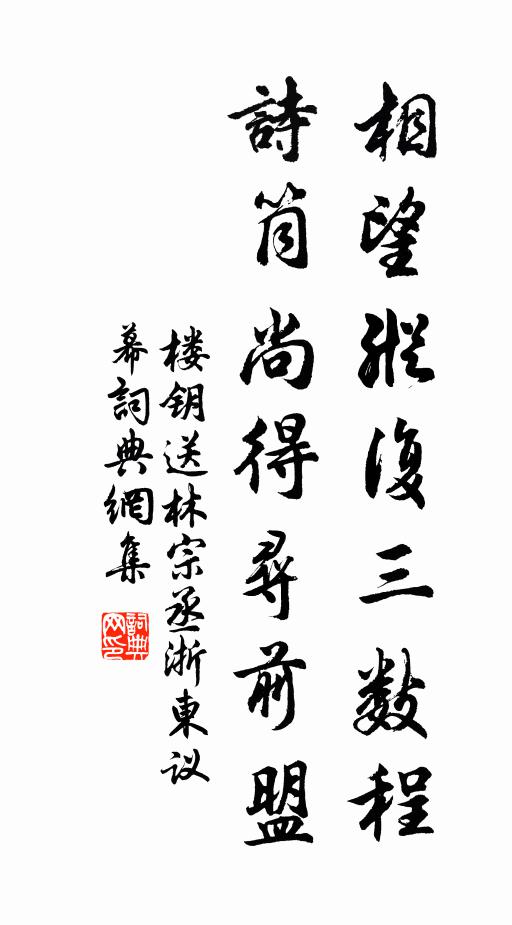 相望縱復三数程
詩筒尚得尋前盟
楼钥送林宗丞浙東议
幕詞典網集
詞典网印